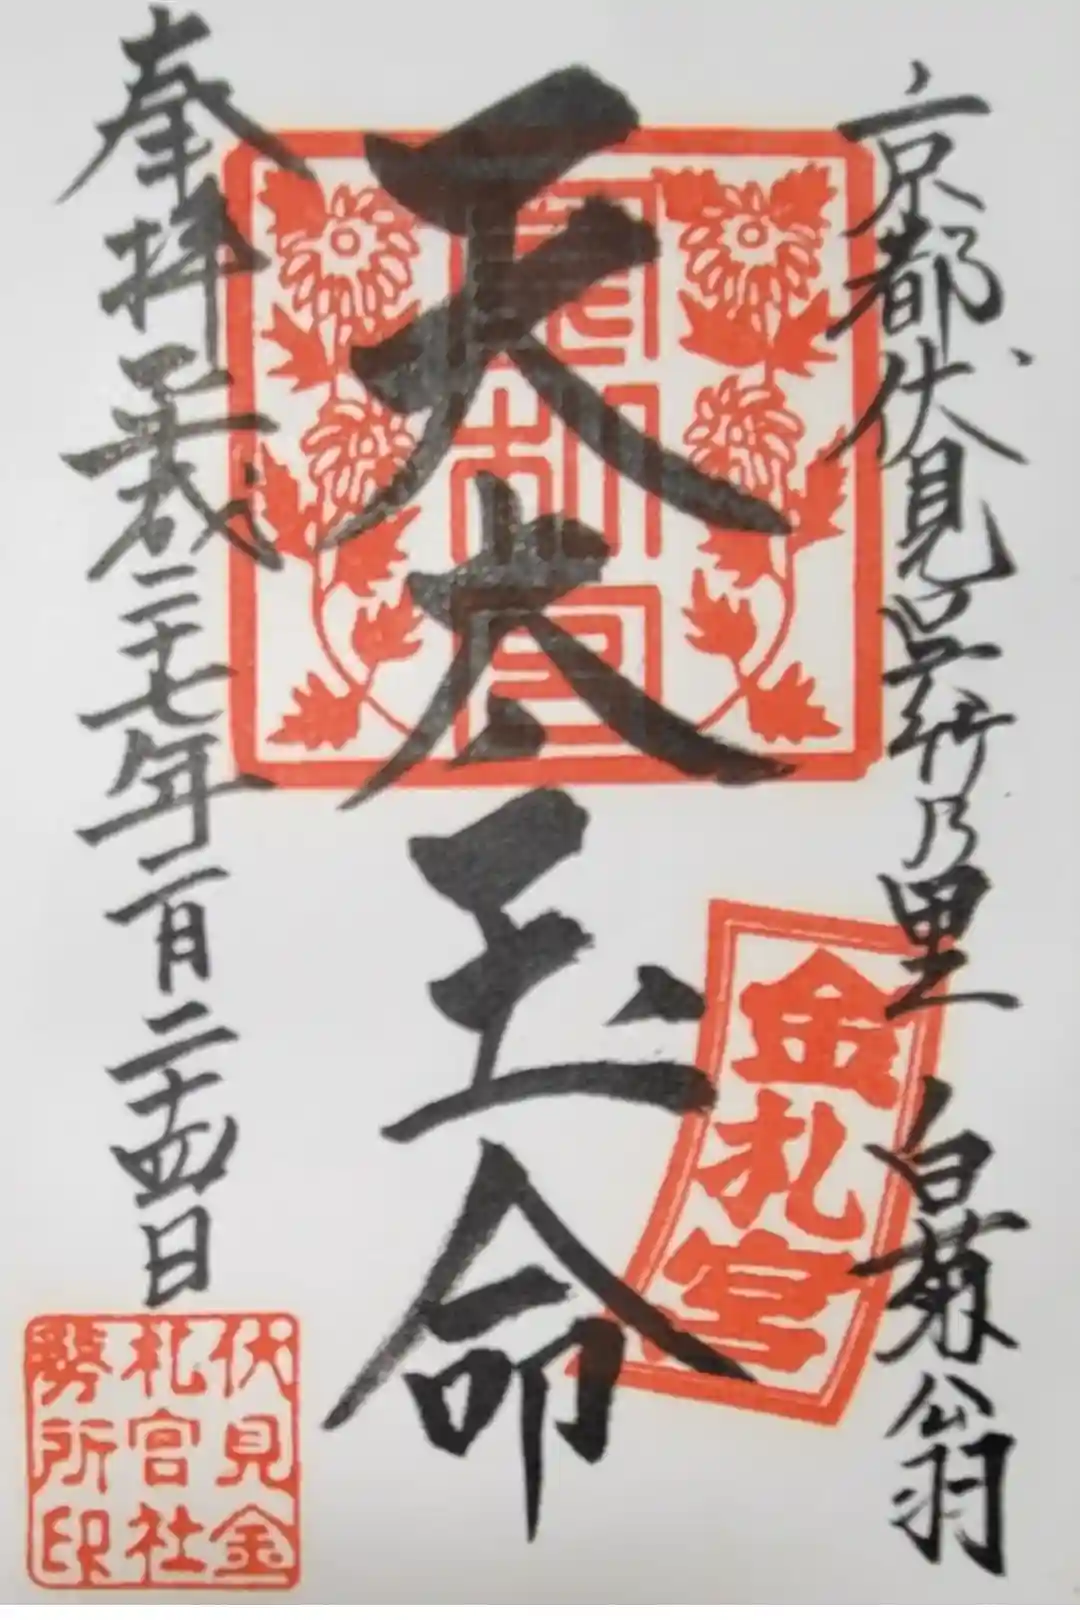 京都伏見呉竹乃里 白菊翁
金札宮
天太玉命
金札宮
奉拝 平成二十七年二月二十四日
伏見金
札宮社
務所印